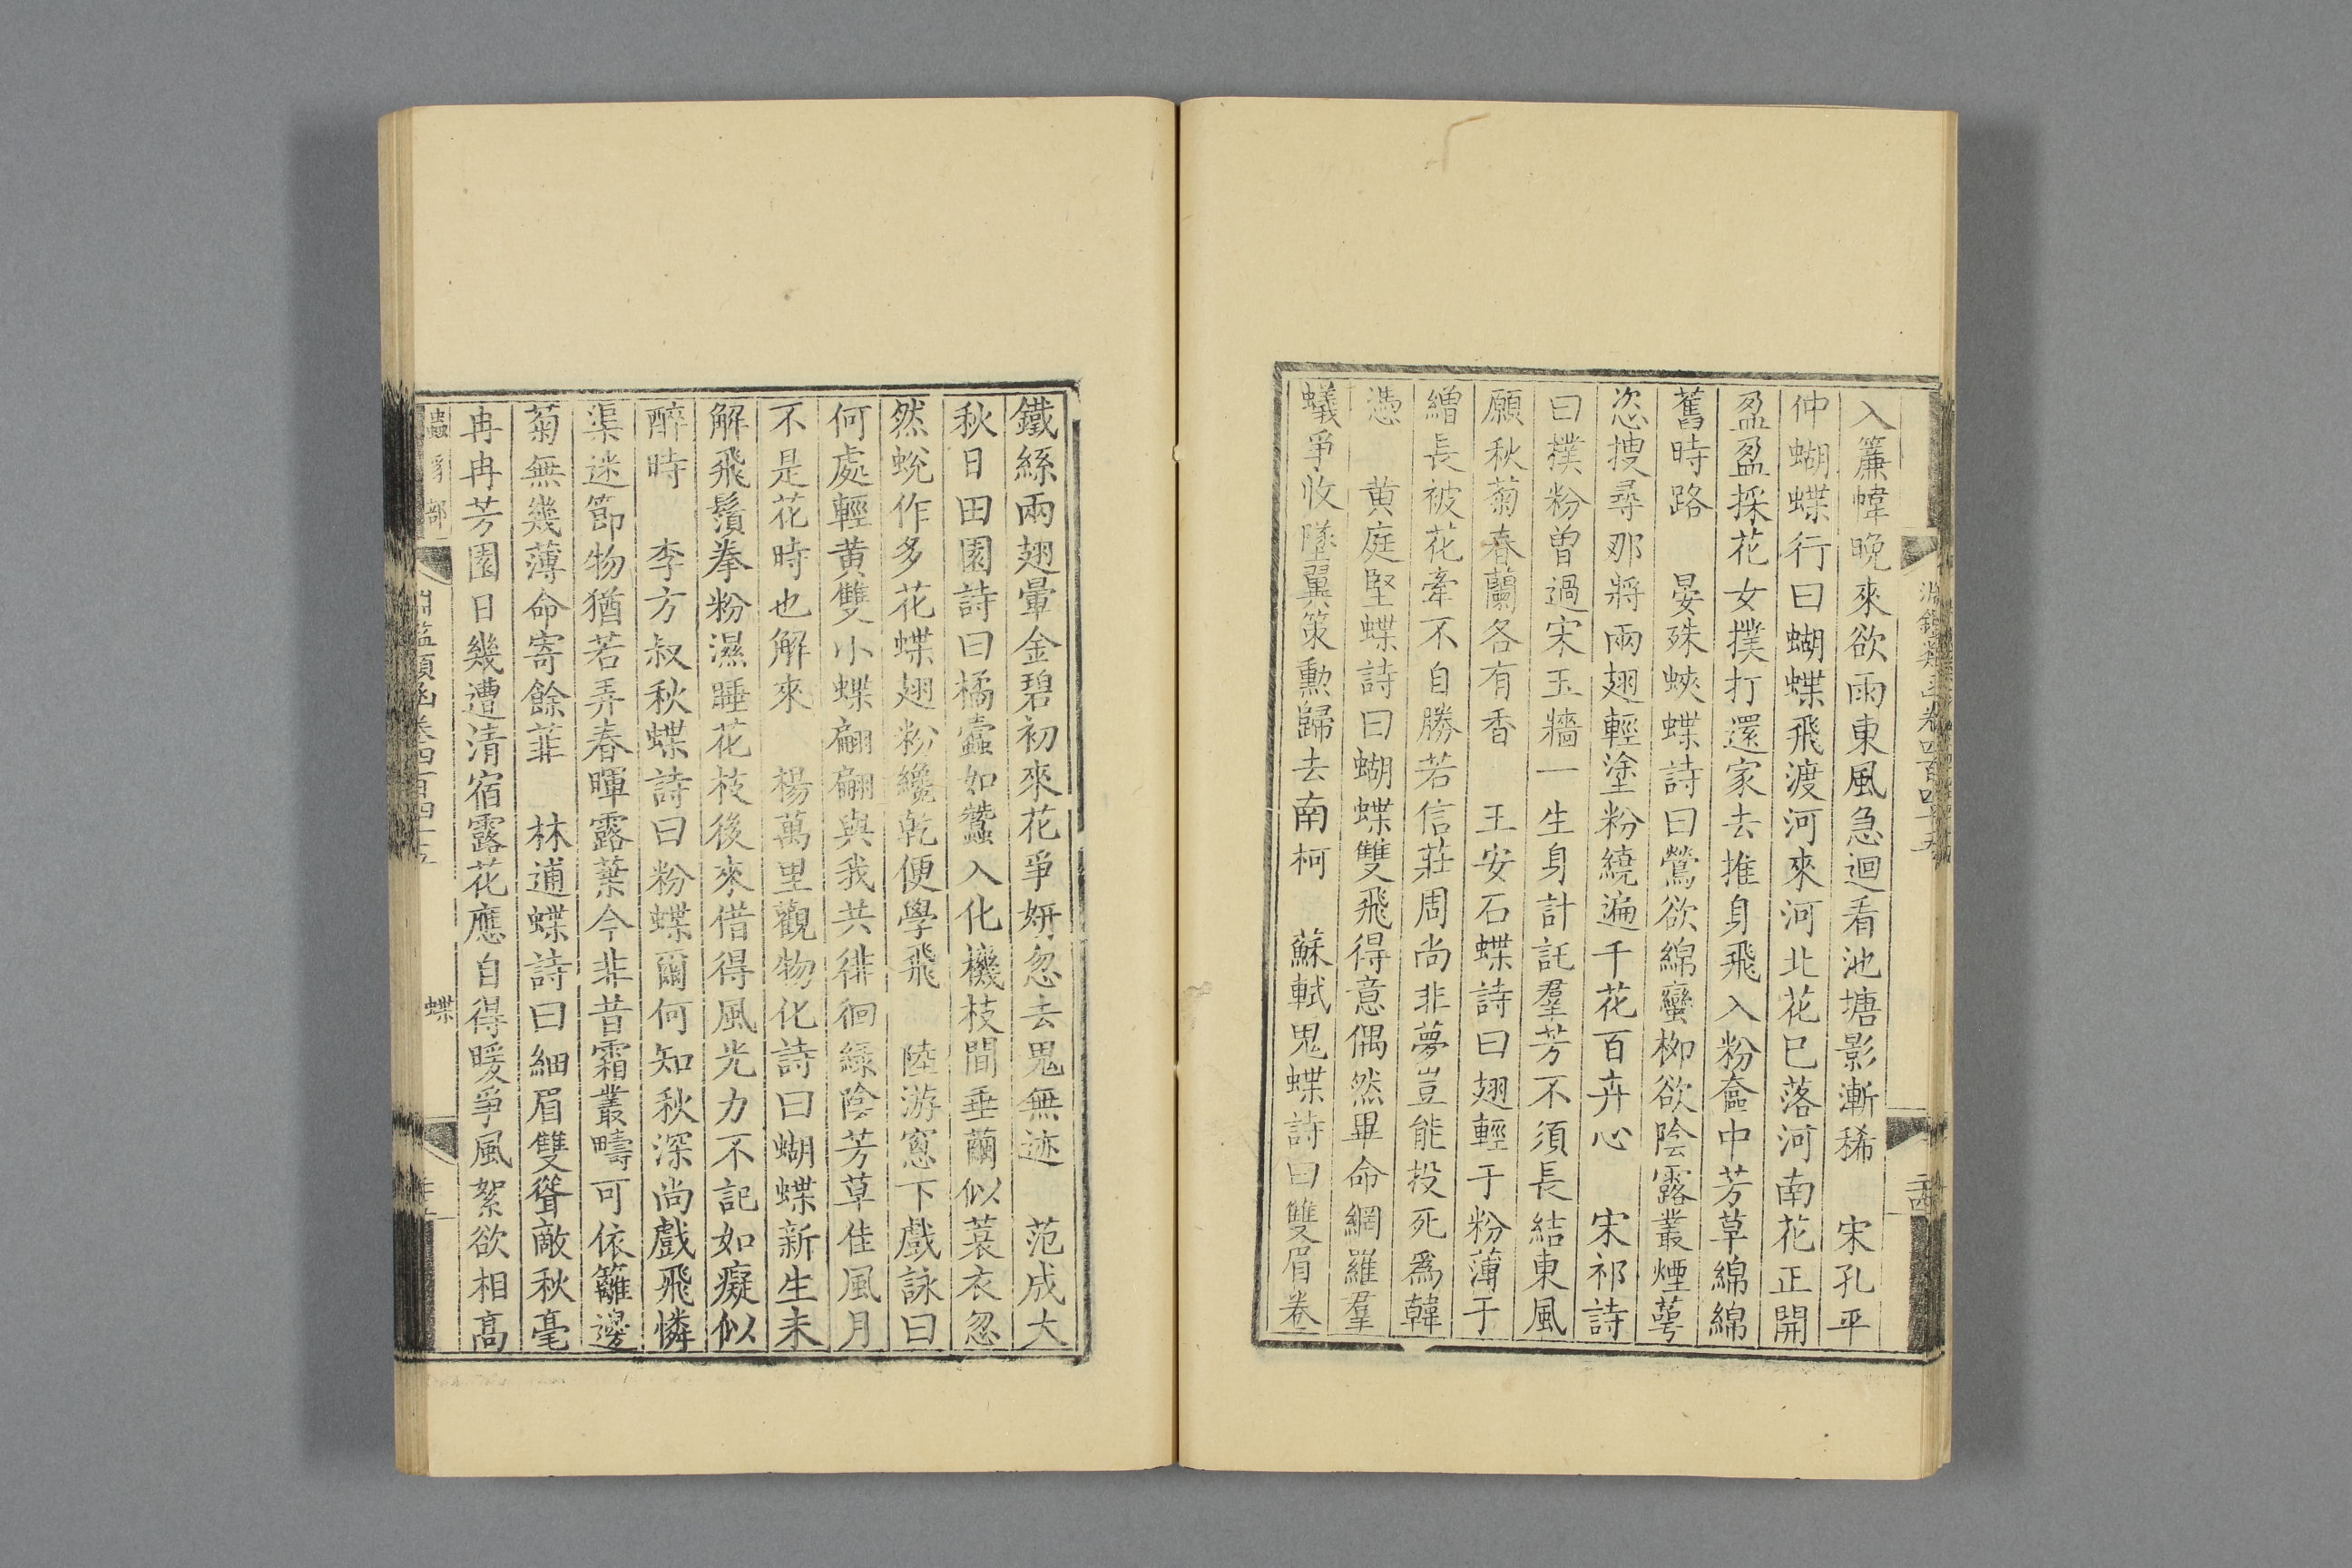 入簾幃晚來欲雨東風急迴看池塘影漸稀　宋孔平
仲蝴蝶行曰蝴蝶飛渡河來河北花已落河南花正開
盈盈採花女撲打還家去推身飛入粉奩中芳草綿綿
舊時路　晏殊蛺蝶詩曰鶯欲綿蠻栁欲陰露叢煙蕚
恣捜尋那將兩翅輕塗粉繞遍千花百卉心　宋祁詩
曰撲粉曾過宋玉牆一生身計託羣芳不須長結東風
願秋菊春蘭各有香　王安石蝶詩曰翅輕于粉薄于
繒長被花牽不自勝若信莊周尚非夢豈能投死爲韓
憑　黃庭堅蝶詩曰蝴蝶雙飛得意偶然畢命網羅羣
蟻爭收墜翼策勳歸去南柯　蘇軾鬼蝶詩曰雙眉卷
鐵絲兩翅暈金碧初來花爭妍忽去鬼無迹　范成大
秋日田園詩曰橘蠹如蠶入化機枝間垂繭似蓑衣忽
然蛻作多花蝶翅粉纔乾便學飛　陸游窻下戲詠曰
何處輕黃雙小蝶翩翩與我共徘徊綠陰芳草佳風月
不是花時也解來　楊萬里觀物化詩曰蝴蝶新生未
解飛鬚拳粉濕睡花枝後來借得風光力不記如癡似
醉時　李方叔秋蝶詩曰粉蝶爾何知秋深尚戲飛憐
渠迷節物猶若弄春暉露葉今非昔霜叢疇可依籬邊
菊無幾薄命寄餘菲　林逋蝶詩曰細眉雙聳敵秋毫
冉冉芳園日幾遭清宿露花應自得暖爭風絮欲相高
蟲豸部
蝶